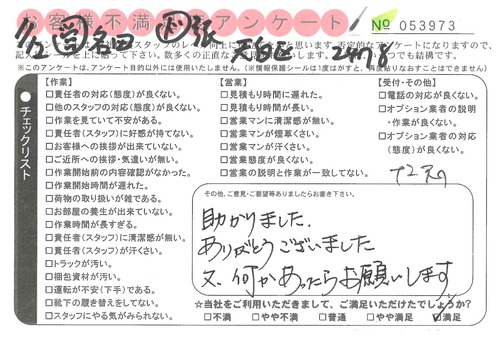 お客様不満足アンケート
№ 053973
※このアンケートは、アンケート目的以外には使用いたしません。(※情報保護シールは1度はがすと、再度貼りなおすことはできません)
チェックリスト
【作業】
□責任者の対応(態度)が良くない。
□他のスタッフの対応(態度)が良くない。
□作業を見ていて不安がある。
□責任者(スタッフ)に好感が持てない。
□お客様への挨拶が出来ていない。
□ご近所への挨拶・気遣いが無い。
□作業開始前の内容確認がなかった。
□作業開始時間が遅れた。
□荷物の取り扱いが雑である。
□お部屋の養生が出来ていない。
□作業時間が長すぎる。
□責任者(スタッフ)に清潔感が無い。
□責任者(スタッフ)が汗くさい。
□トラックが汚い。
□梱包資材が汚い。
□運転が不安(下手)である。
□靴下の履き替えをしてない。
□スタッフにやる気がみられない。
【営業】
□見積もり時間に遅れた。
□見積もり時間が長い。
□営業マンに清潔感が無い。
□営業マンが煙草くさい。
□営業マンが汗くさい。
□営業態度が良くない。
□営業の説明と作業が一致してない。
【受付・その他】
□電話の対応が良くない。
□オプション業者の説明・作業が良くない。
□オプション業者の対応(態度)が良くない。
その他、ご意見・ご要望等ありましたらお書き下さい。
助かりました。
ありがとうございました
又、何かあったらお願いします
☆当社をご利用いただきまして、ご満足いただけたでしょうか?
□不満 □やや不満 □普通 □やや満足 ☑満足